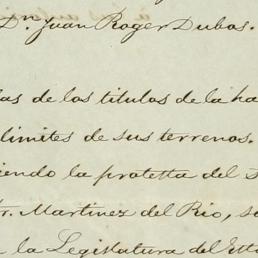 Dn. Juan Roger Dubos.
las de los titulos de la ha
limites de sus terrenos.
iendo la protesta del
r. Martinez del Rio, s
a la Legislatura del Est